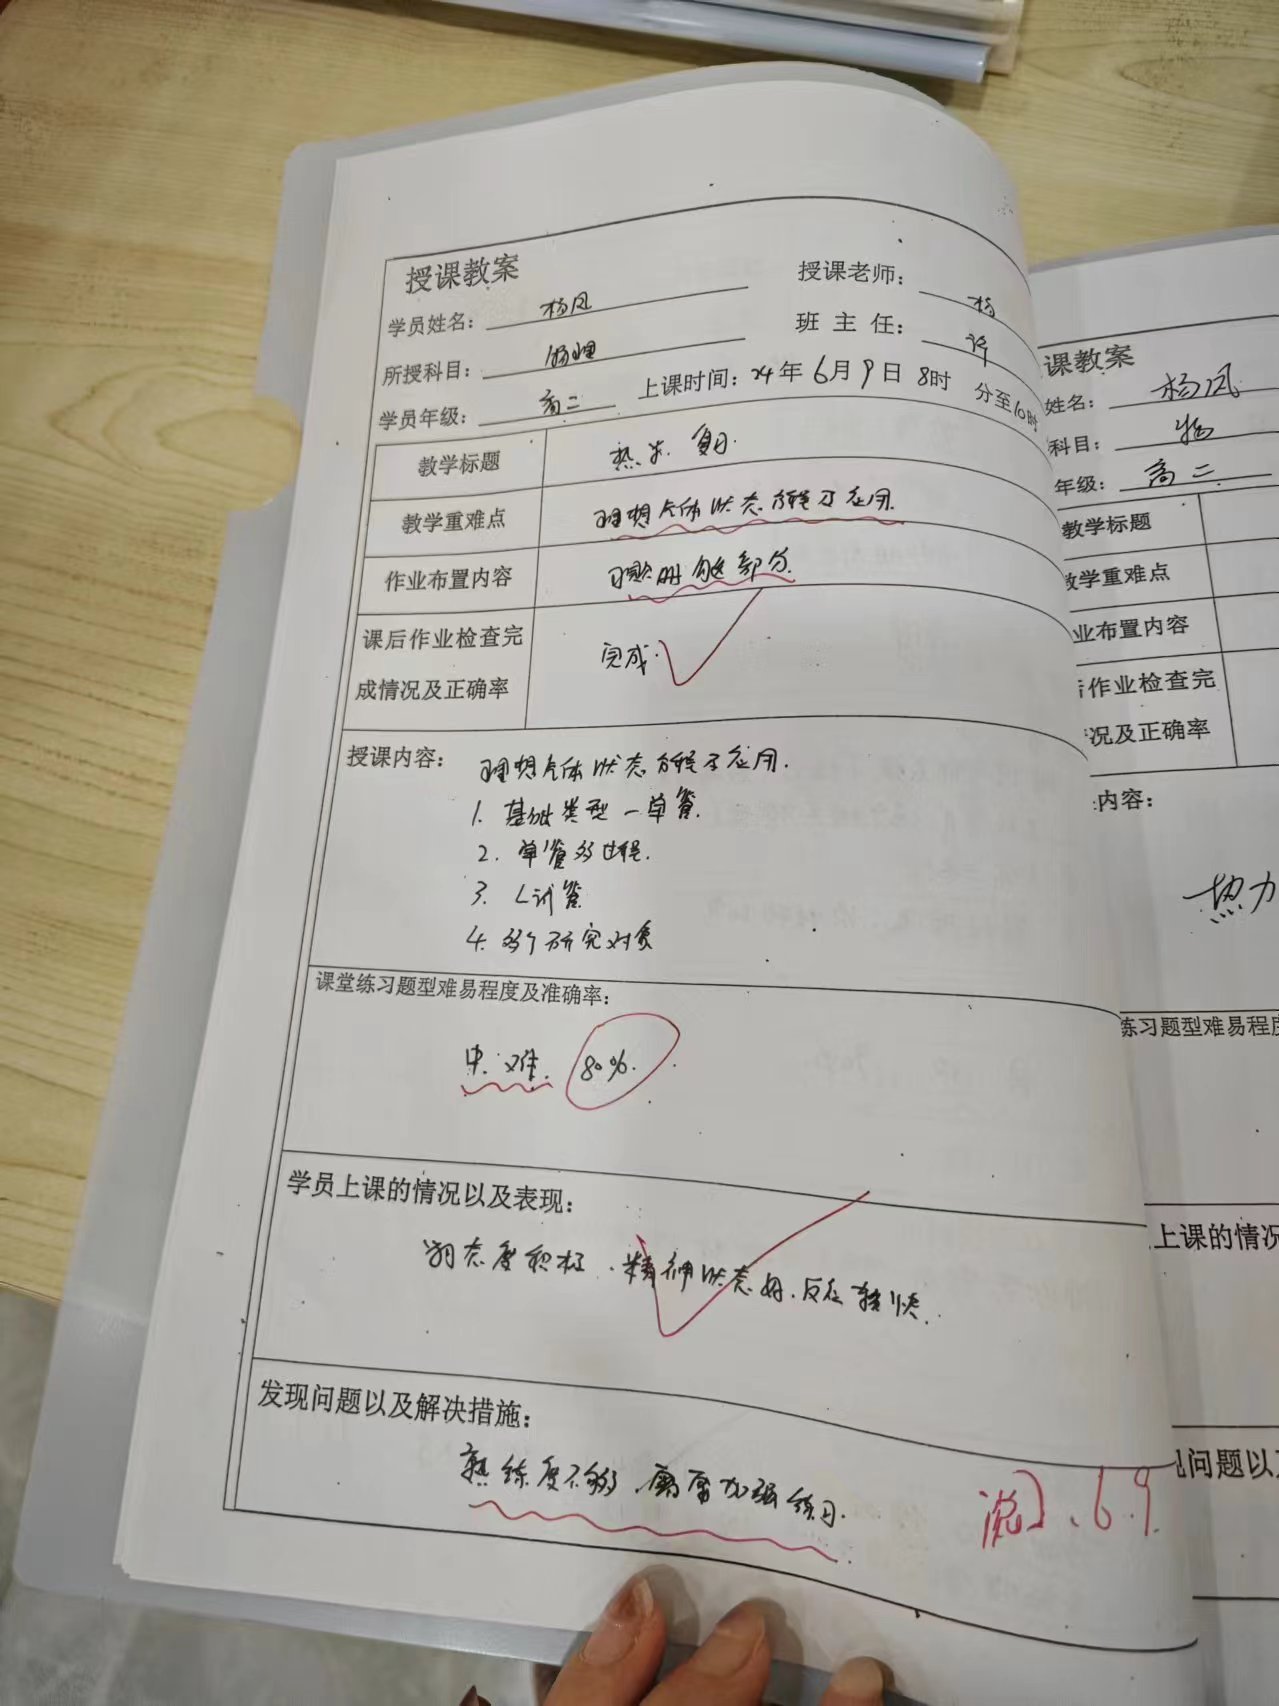 授课教案
授课老师: 杨
学员姓名: 杨凤
班 主 任: 许
所授科目: 物理
学员年级: 高二 上课时间: 24年6月9日 8时 分至10时
教学标题 热学 复习.
教学重难点 理想气体状态方程及应用.
作业布置内容 习题册 部分.
课后作业检查完
成情况及正确率 完成.
授课内容: 理想气体状态方程及应用.
1. 基础类型—单管.
2. 单管多过程.
3. L试管
4. 多个研究对象
课堂练习题型难易程度及准确率:
中. 难. 80%.
学员上课的情况以及表现:
态度积极. 精神状态好. 反应较快.
发现问题以及解决措施:
熟练度不够. 需要加强练习.
6.9
课教案
姓名: 杨凤
科目: 物
年级: 高二
教学标题
教学重难点
业布置内容
作业检查完
况及正确率
内容:
热力
练习题型难易程度
上课的情况
问题以及